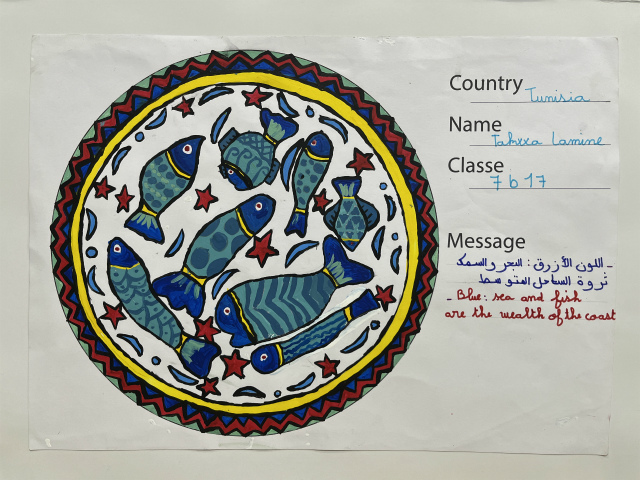 Country Tunisia
Name Lamine
Classe 7 b 17
Message
_ اللون الأزرق : البحر والسمك
ثروة الساحل المتوسط
_ Blue: sea and fish
are the wealth of the coast